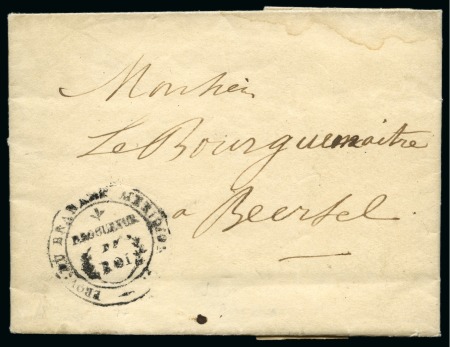 Monsieur
Le Bourguemaitre
a Beersel
PROV. DU BRABANT MERIDION
PROCUREUR
DU
ROI